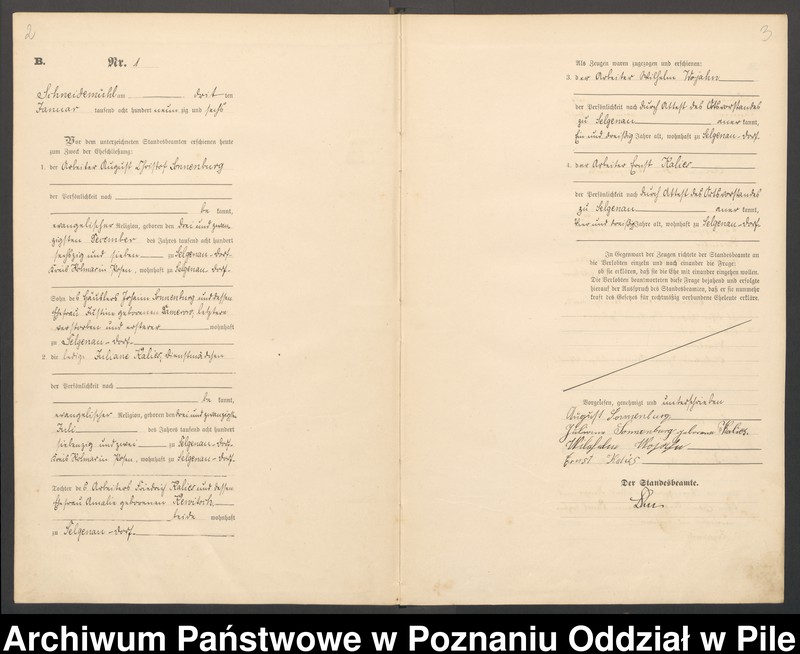 2
B.
Nr. 1
Schneidemühl am dritten
Januar tausend acht hundert neunzig und sechs
Vor dem unterzeichneten Standesbeamten erschienen heute
zum Zweck der Eheschließung:
1. der Arbeiter August Christof Sonnenburg
der Persönlichkeit nach
be kannt,
evangelischer Religion, geboren den drei und zwan
zigsten Dezember des Jahres tausend acht hundert
sechszig und sieben zu Selgenau-Dorf
Kreis Kolmar in Posen, wohnhaft zu Selgenau-Dorf.
Sohn des Häuslers Johann Sonnenburg und dessen
Ehefrau Justine geborenen letztere
verstorben und ersterer wohnhaft
zu Selgenau-Dorf.
2. die ledige Juliane Kalies, Dienstmädchen
der Persönlichkeit nach
be kannt,
evangelischer Religion, geboren den drei und zwanzigsten
Juli des Jahres tausend acht hundert
siebenzig und zwei zu Selgenau-Dorf.
Kreis Kolmar in Posen, wohnhaft zu Selgenau-Dorf.
Tochter des Arbeiters Friedrich Kalies und dessen
Ehefrau Amalie geborenen
beide wohnhaft
zu Selgenau-Dorf.
3
Als Zeugen waren zugezogen und erschienen:
3. der Arbeiter Wilhelm Wojahn
der Persönlichkeit nach durch Attest des Ortsvorstandes
zu Selgenau aner kannt,
Ein und dreißig Jahre alt, wohnhaft zu Selgenau-Dorf.
4. der Arbeiter Ernst Kalies
der Persönlichkeit nach durch Attest des Ortsvorstandes
zu Selgenau aner kannt,
und dreißig Jahre alt, wohnhaft zu Selgenau-Dorf.
In Gegenwart der Zeugen richtete der Standesbeamte an
die Verlobten einzeln und nach einander die Frage:
ob sie erklären, daß sie die Ehe mit einander eingehen wollen.
Die Verlobten beantworteten diese Frage bejahend und erfolgte
hierauf der Ausspruch des Standesbeamten, daß er sie nunmehr
kraft des Gesetzes für rechtmäßig verbundene Eheleute erkläre.
Vorgelesen, genehmigt und unterschrieben
August Sonnenburg
Juliane Sonnenburg geborene Kalies.
Wilhelm Wojahn
Ernst Kalies
Der Standesbeamte.
Archiwum Państwowe w Poznaniu Oddział w Pile